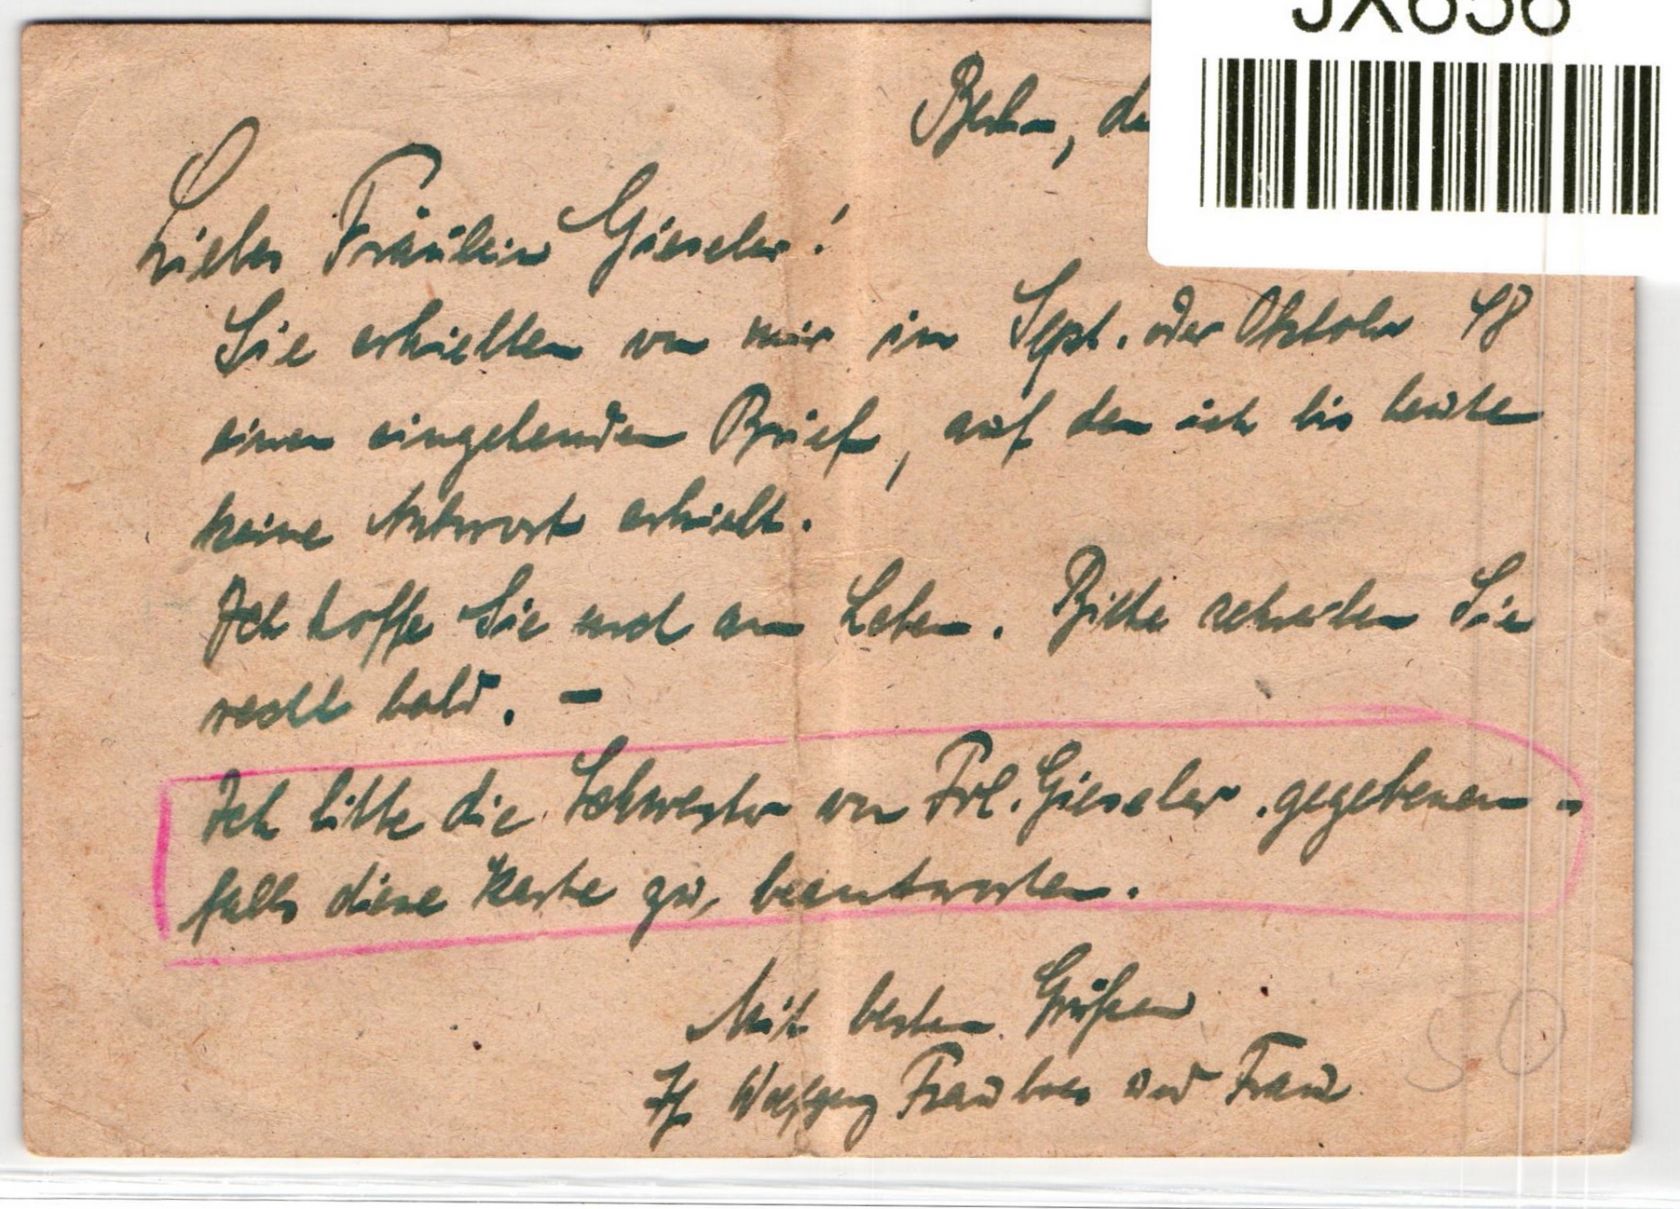 JX656
Berlin, de
Liebes Fräulein Gieseler!
Sie erhielten von mir im Sept. oder Oktober 48
einen eingehenden Brief, auf den ich bis heute
keine Antwort erhielt.
Ich hoffe Sie noch am Leben. Bitte schreiben Sie
recht bald. –
Ich bitte die Schwester von Frl. Gieseler gegebenen-
falls diese Karte zu beantworten.
Mit besten Grüßen
Wolfgang und Frau
50